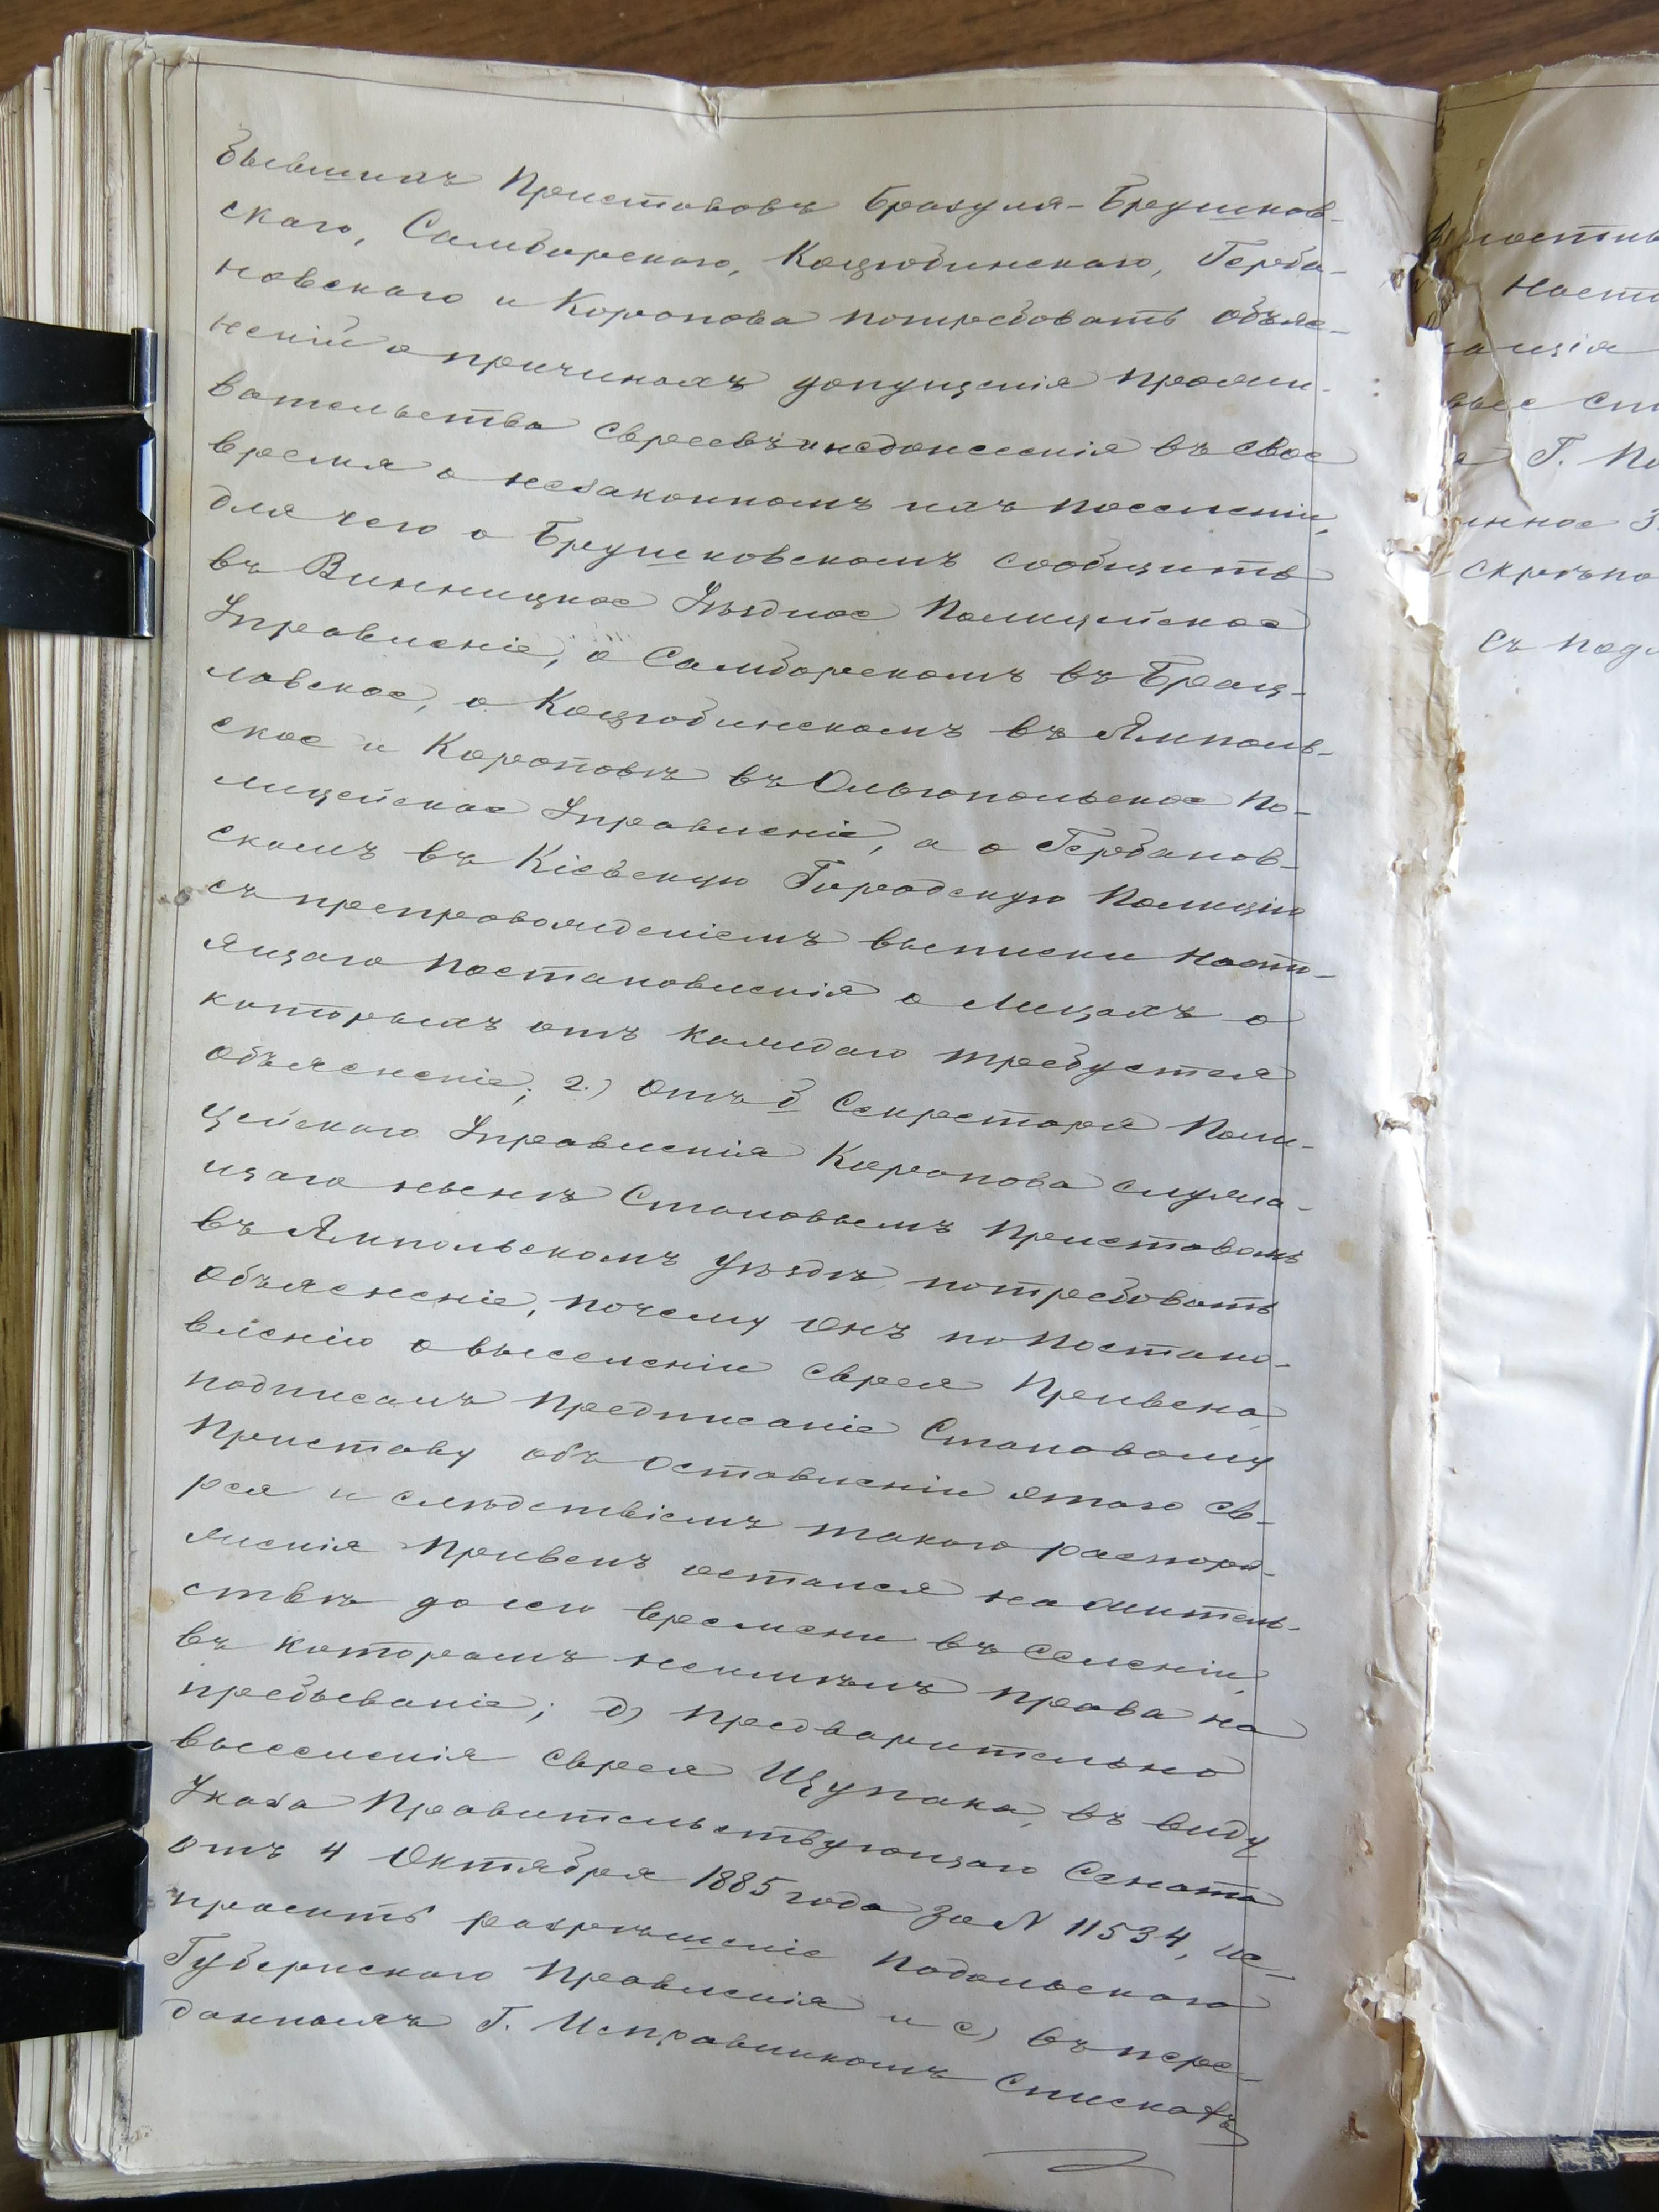 бывшихъ Приставовъ Бразуля-Брушков-
скаго, Самборскаго, Коцюбинскаго, Герба-
новскаго и Коропова потребовать объяс-
неній о причинахъ допущенія прожи-
вательства евреевъ и недонесенія въ свое
время о незаконномъ ихъ поселеніи,
для чего о Брушковскомъ сообщить
въ Винницкое Уѣздное Полицейское
Управленіе, о Самборскомъ въ Брац-
лавское, о Коцюбинскомъ въ Ямполь-
ское и Кароповѣ въ Ольгопольское По-
лицейское Управленіе, а о Гербанов-
скомъ въ Кіевскую Городскую Полицію
съ препровожденіемъ выписки насто-
ящаго постановленія о лицахъ о
которыхъ отъ каждаго требуется
объясненіе; 2.) Отъ б Секретаря Поли-
цейскаго Управленія Каропова служа-
щаго нынѣ Становымъ Приставомъ
въ Ямпольскомъ уѣздѣ потребовать
объясненіе, почему онъ по Постано-
вленію о выселеніи еврея Привена
подписалъ предписаніе Становому
Приставу объ оставленіи этого ев-
рея и слѣдствіемъ такого распоря-
женія Привенъ остался на житель-
ствѣ до сего времени въ селеніи,
въ которомъ неимѣлъ права на
пребываніе; д) предварительно
выселенія еврея Щупака, въ виду
Указа Правительствующаго Сената
отъ 4 Октября 1885 года за N 11534, ис-
просить разрѣшеніе Подольскаго
Губернскаго Правленія и е) въ пере-
данныхъ Г. Исправникомъ Спискахъ
ностью
насто
лиція
вые сп
Г. По
нное З
скрѣпо
Съ под